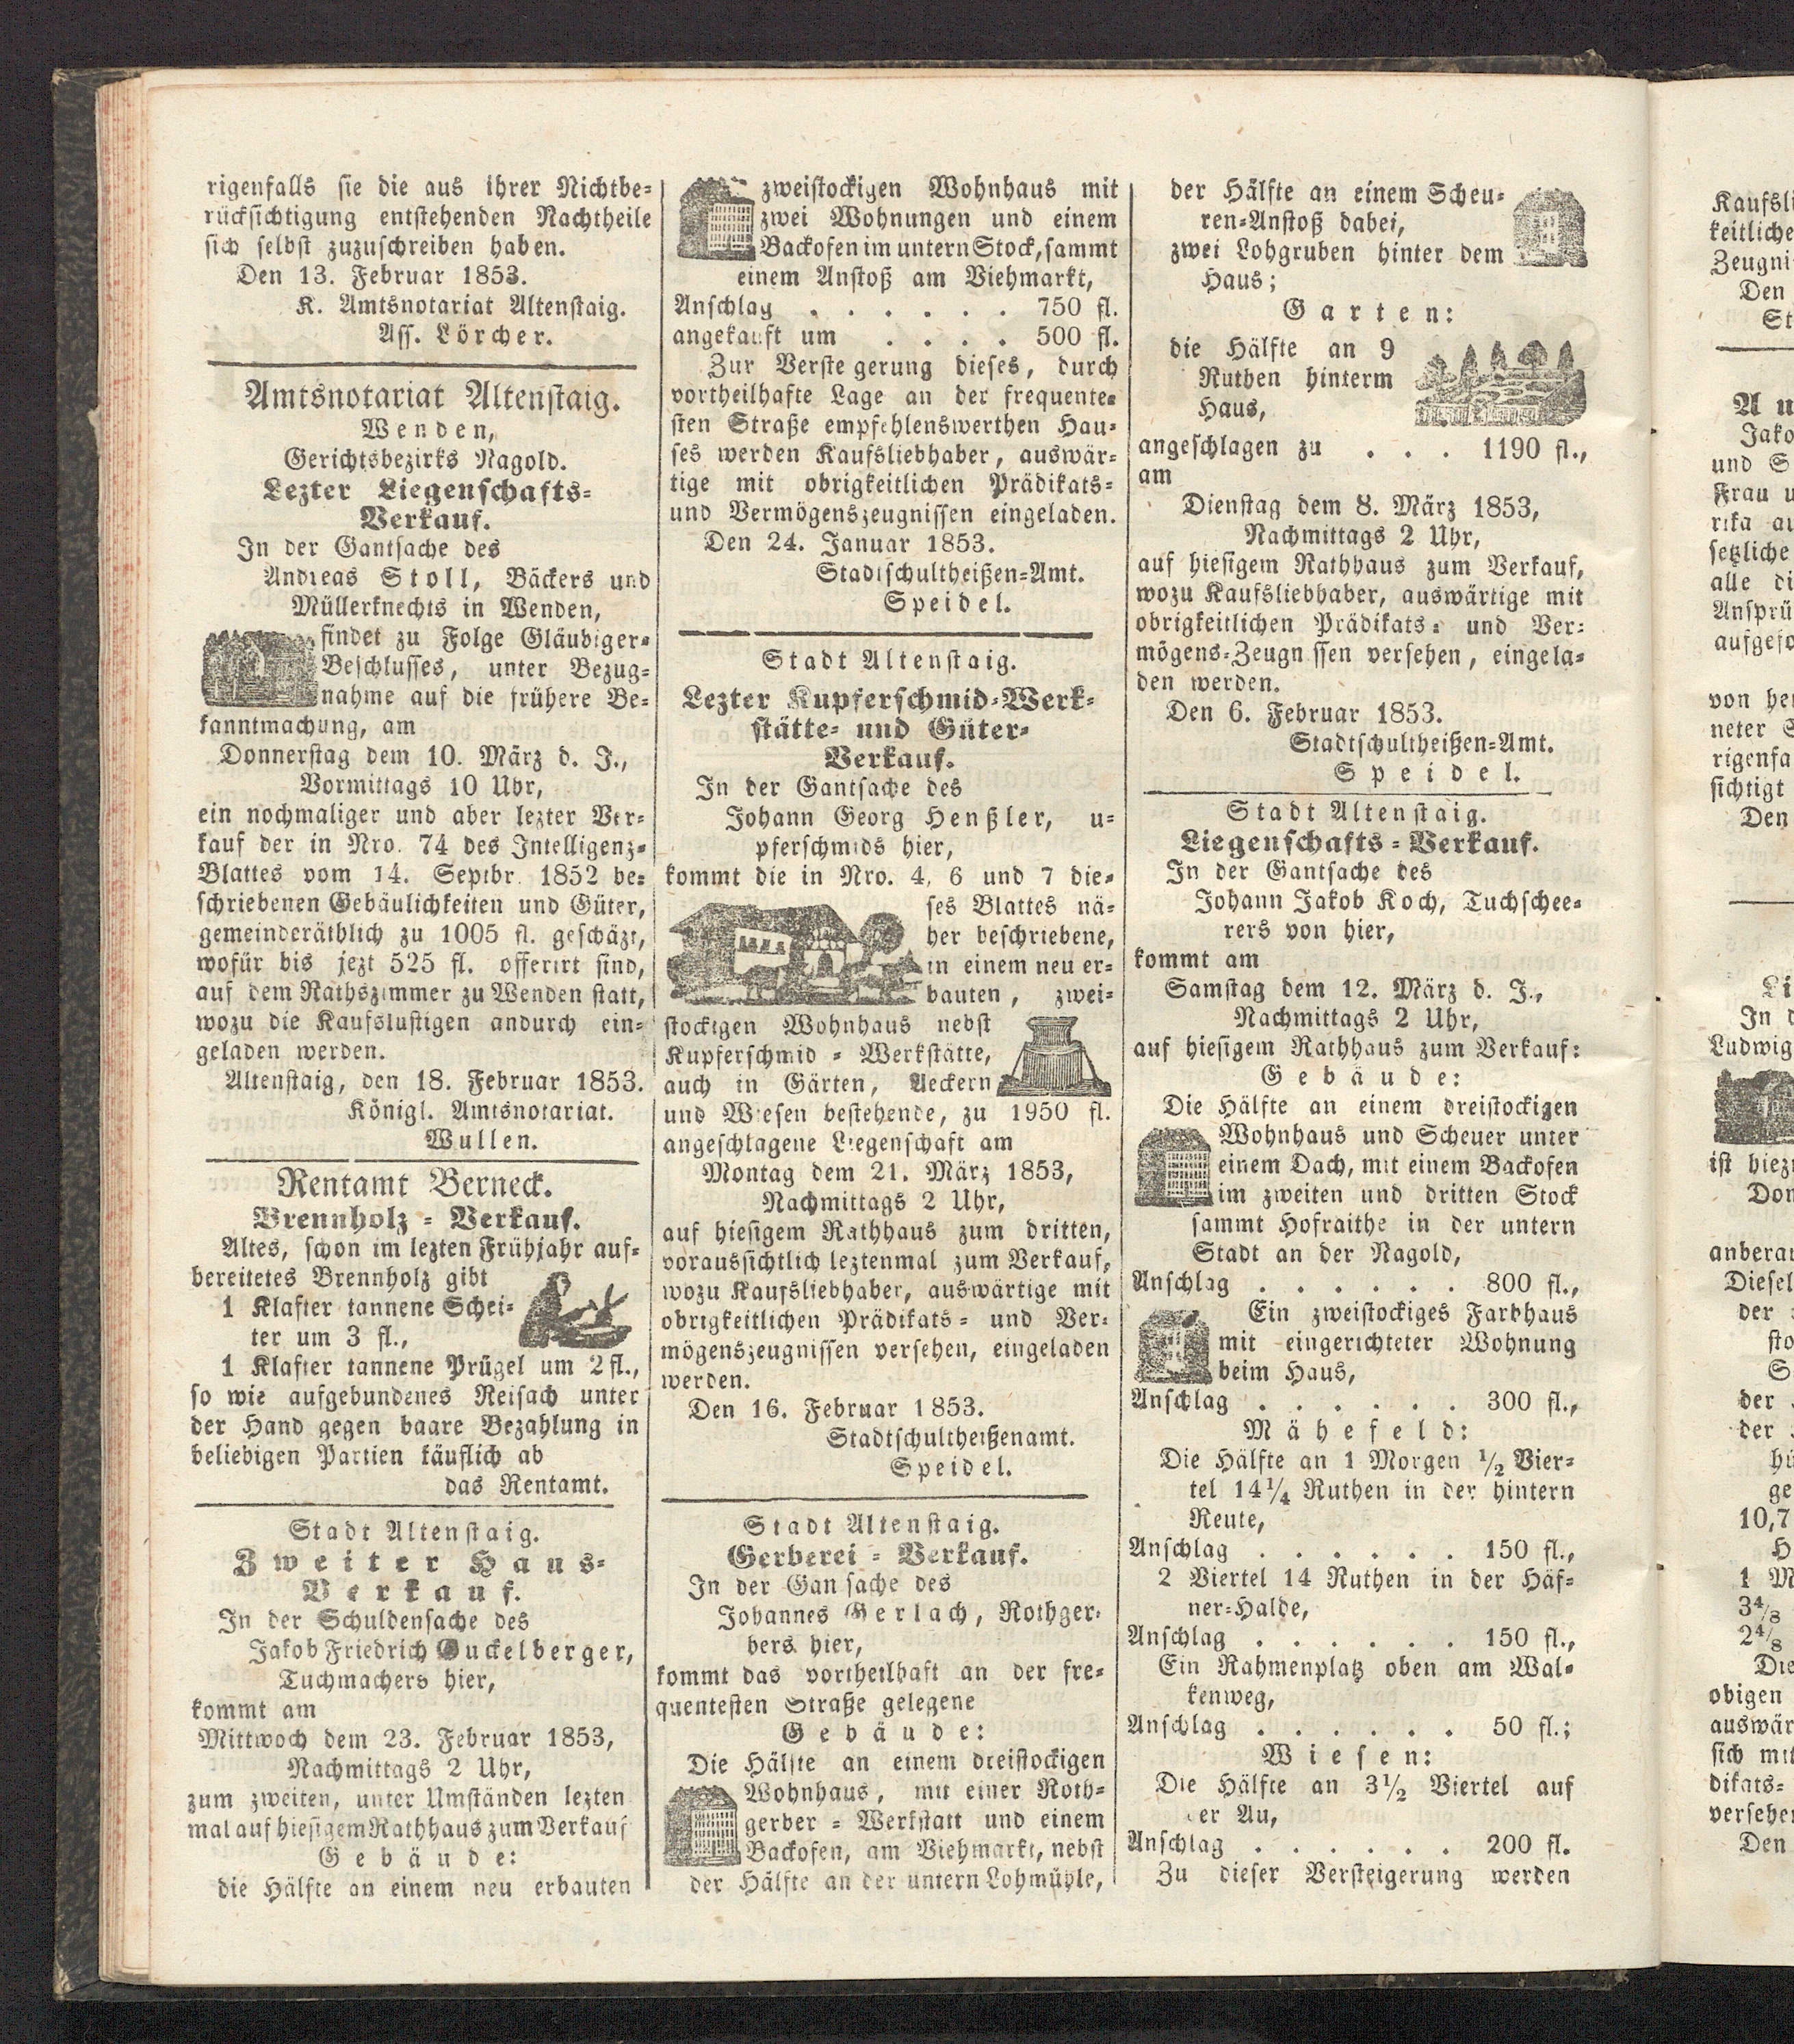 rigenfalls sie die aus ihrer Nichtbe-
rücksichtigung entstehenden Nachtheile
sich selbst zuzuschreiben haben.
Den 13. Februar 1853.
K. Amtsnotariat Altenstaig.
Ass. Lörcher.
Amtsnotariat Altenstaig.
Wenden,
Gerichtsbezirks Nagold.
Lezter Liegenschafts-
Verkauf.
In der Gantsache des
Andreas Stoll, Bäckers und
Müllerknechts in Wenden,
findet zu Folge Gläubiger-
Beschlusses, unter Bezug-
nahme auf die frühere Be-
kanntmachung, am
Donnerstag dem 10. März d. J.,
Vormittags 10 Uhr,
ein nochmaliger und aber lezter Ver-
kauf der in Nro. 74 des Intelligenz-
Blattes vom 14. Septbr. 1852 be-
schriebenen Gebäulichkeiten und Güter,
gemeinderäthlich zu 1005 fl. geschäzt,
wofür bis jezt 525 fl. offerirt sind,
auf dem Rathszimmer zu Wenden statt,
wozu die Kaufslustigen andurch ein-
geladen werden.
Altenstaig, den 18. Februar 1853.
Königl. Amtsnotariat.
Wullen.
Rentamt Berneck.
Brennholz-Verkauf.
Altes, schon im lezten Frühjahr auf-
bereitetes Brennholz gibt
1 Klafter tannene Schei-
ter um 3 fl.,
1 Klafter tannene Prügel um 2 fl.,
so wie aufgebundenes Reisach unter
der Hand gegen baare Bezahlung in
beliebigen Partien käuflich ab
das Rentamt.
Stadt Altenstaig.
Zweiter Haus-
Verkauf.
In der Schuldensache des
Jakob Friedrich Guckelberger,
Tuchmachers hier,
kommt am
Mittwoch dem 23. Februar 1853,
Nachmittags 2 Uhr,
zum zweiten, unter Umständen lezten
mal auf hiesigem Rathhaus zum Verkauf
Gebäude:
die Hälfte an einem neu erbauten
zweistockigen Wohnhaus mit
zwei Wohnungen und einem
Backofen im untern Stock, sammt
einem Anstoß am Viehmarkt,
Anschlag . . . . . . 750 fl.
angekauft um . . . . 500 fl.
Zur Verste gerung dieses, durch
vortheilhafte Lage an der frequente-
sten Straße empfehlenswerthen Hau-
ses werden Kaufsliebhaber, auswär-
tige mit obrigkeitlichen Prädikats-
und Vermögenszeugnissen eingeladen.
Den 24. Januar 1853.
Stadtschultheißen-Amt.
Speidel.
Stadt Altenstaig.
Lezter Kupferschmid-Werk-
stätte- und Güter-
Verkauf.
In der Gantsache des
Johann Georg Henßler, u-
pferschmids hier,
kommt die in Nro. 4, 6 und 7 die-
ses Blattes nä-
her beschriebene,
in einem neu er-
bauten, zwei-
stockigen Wohnhaus nebst
Kupferschmid-Werkstätte,
auch in Gärten, Aeckern
und Wiesen bestehende, zu 1950 fl.
angeschlagene Liegenschaft am
Montag dem 21. März 1853,
Nachmittags 2 Uhr,
auf hiesigem Rathhaus zum dritten,
voraussichtlich leztenmal zum Verkauf,
wozu Kaufsliebhaber, auswärtige mit
obrigkeitlichen Prädikats- und Ver-
mögenszeugnissen versehen, eingeladen
werden.
Den 16. Februar 1853.
Stadtschultheißenamt.
Speidel.
Stadt Altenstaig.
Gerberei-Verkauf.
In der Gan sache des
Johannes Gerlach, Rothger-
bers hier,
kommt das vortheilhaft an der fre-
quentesten Straße gelegene
Gebäude:
Die Hälfte an einem dreistockigen
Wohnhaus, mit einer Roth-
gerber-Werkstatt und einem
Backofen, am Viehmarkt, nebst
der Hälfte an der untern Lohmühle,
der Hälfte an einem Scheu-
ren-Anstoß dabei,
zwei Lohgruben hinter dem
Haus;
Garten:
die Hälfte an 9
Ruthen hinterm
Haus,
angeschlagen zu . . . 1190 fl.,
am
Dienstag dem 8. März 1853,
Nachmittags 2 Uhr,
auf hiesigem Rathhaus zum Verkauf,
wozu Kaufsliebhaber, auswärtige mit
obrigkeitlichen Prädikats- und Ver-
mögens-Zeugn ssen versehen, eingela-
den werden.
Den 6. Februar 1853.
Stadtschultheißen-Amt.
Speidel.
Stadt Altenstaig.
Liegenschafts-Verkauf.
In der Gantsache des
Johann Jakob Koch, Tuchschee-
rers von hier,
kommt am
Samstag dem 12. März d. J.,
Nachmittags 2 Uhr,
auf hiesigem Rathhaus zum Verkauf:
Gebäude:
Die Hälfte an einem dreistockigen
Wohnhaus und Scheuer unter
einem Dach, mit einem Backofen
im zweiten und dritten Stock
sammt Hofraithe in der untern
Stadt an der Nagold,
Anschlag . . . . . . 800 fl.,
Ein zweistockiges Farbhaus
mit eingerichteter Wohnung
beim Haus,
Anschlag . . . . . . 300 fl.,
Mähefeld:
Die Hälfte an 1 Morgen 1/2 Vier-
tel 14 1/4 Ruthen in der hintern
Reute,
Anschlag . . . . . . 150 fl.,
2 Viertel 14 Ruthen in der Häf-
ner-Halde,
Anschlag . . . . . . 150 fl.,
Ein Rahmenplatz oben am Wal-
kenweg,
Anschlag . . . . . . 50 fl.;
Wiesen:
Die Hälfte an 3 1/2 Viertel auf
er Au,
Anschlag . . . . . . 200 fl.
Zu dieser Versteigerung werden
Kaufsli
keitliche
Zeugni
Den
St
A u
Jako
und S
Frau u
rika au
setzliche
alle di
Ansprü
aufgefo
von her
neter S
rigenfa
sichtigt
Den
Li
In d
Ludwig
ist hiez
Don
anberau
Diesel
der
sto
S
der
der
hi
ge
10,7
H
1 M
3 4/8
2 4/8
Die
obigen
auswär
sich mit
dikats-
versehen
Den